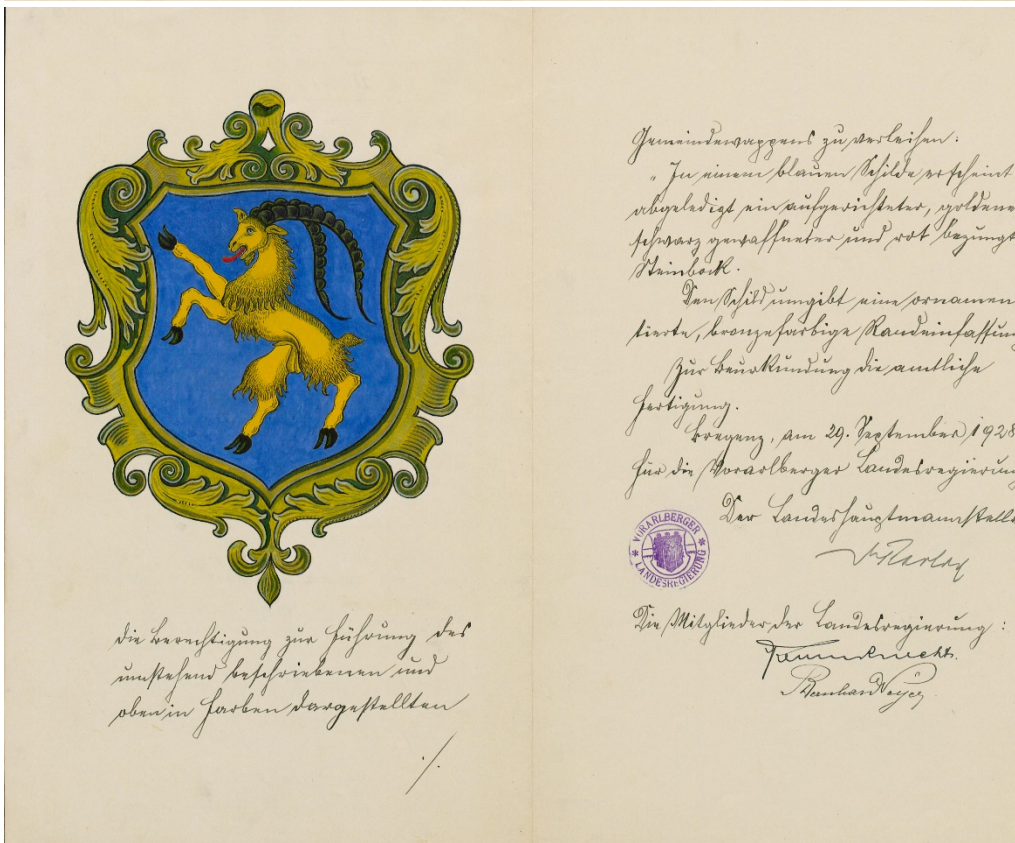 die Berechtigung zur Führung des
umstehend beschriebenen und
oben in Farben dargestellten
./.
Gemeindewappens zu verleihen:
„In einem blauen Schilde erscheint
abgeledigt ein aufgerichteter, goldene
schwarz gewaffneter und rot bezungt
Steinbock.
Den Schild umgibt eine ornamen
tierte, bronzefarbige Randeinfassun
Zur Beurkundung die amtliche
Fertigung.
Bregenz, am 29. September 1928
Für die Vorarlberger Landesregierun
Der Landeshauptmannstell
VORARLBERGER
LANDESREGIERUNG
Die Mitglieder der Landesregierung: